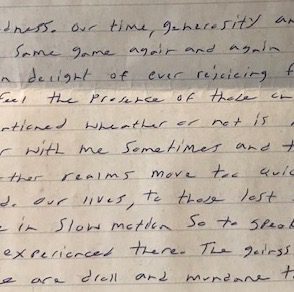 dness. Our time, generosity an
Same game again and again
n delight of ever rejoicing f
feel the Presence of those on
ntioned wheather or not is
r with me Sometimes and t
ther realms move too quic
d. our lives, to those lost
e in Slow motion So to speak
experienced there. The goings
e are droll and mundane t